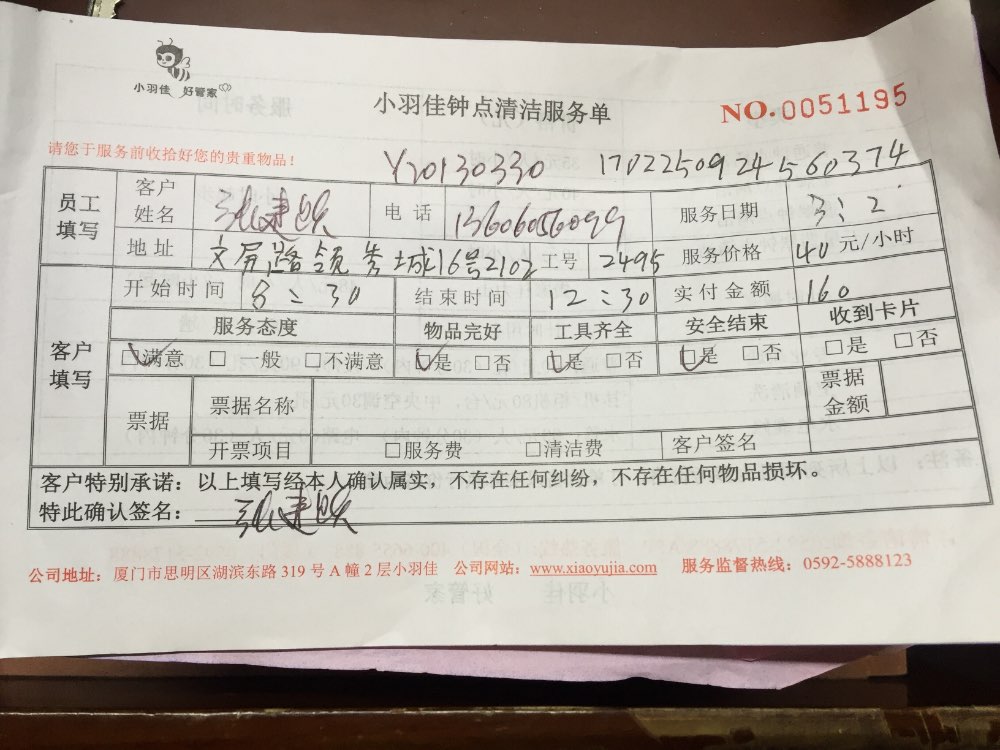 小羽佳 好管家
小羽佳钟点清洁服务单
NO.0051195
请您于服务前收拾好您的贵重物品！
Y20130330 1702250924560374
员工填写 客户姓名 张建 电话 13606056099 服务日期 3:2
地址 文屏路领秀城16号2102 工号 2495 服务价格 40元/小时
客户填写 开始时间 8:30 结束时间 12:30 实付金额 160
服务态度 物品完好 工具齐全 安全结束 收到卡片
☑满意 □一般 □不满意 ☑是 □否 ☑是 □否 ☑是 □否 □是 □否
票据 票据名称 票据金额
开票项目 □服务费 □清洁费 客户签名
客户特别承诺：以上填写经本人确认属实，不存在任何纠纷，不存在任何物品损坏。
特此确认签名： 张建
公司地址：厦门市思明区湖滨东路 319 号 A 幢 2 层小羽佳 公司网站：www.xiaoyujia.com 服务监督热线：0592-5888123